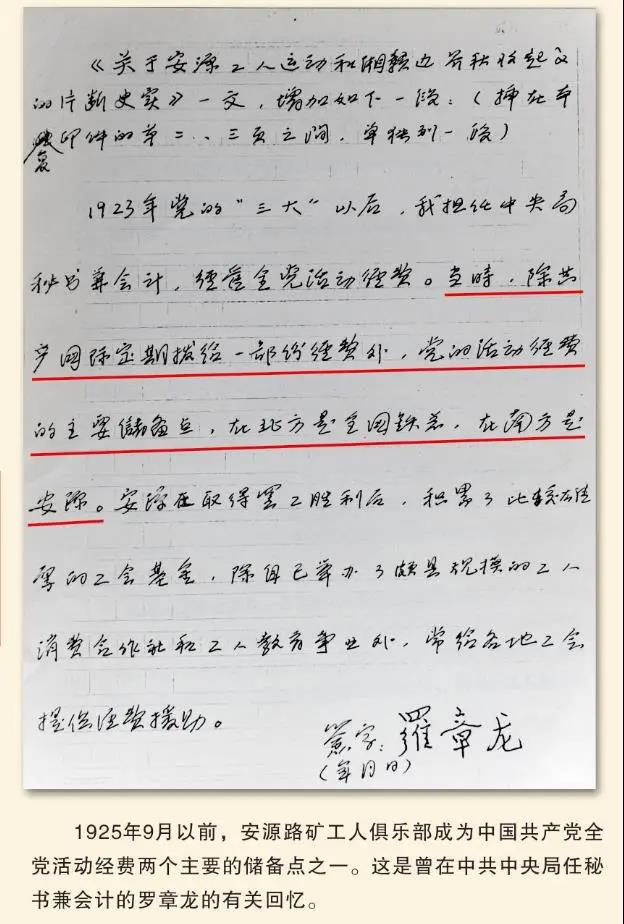 《关于安源工人运动和湘赣边界秋收起义
的片断史实》一文，增加如下一段：（插在本
复印件的第二、三页之间，单独列一段）
1923年党的“三大”以后，我担任中央局
秘书兼会计，经管全党活动经费。当时，除共
产国际定期拨给一部份经费外，党的活动经费
的主要储备点，在北方是全国铁总，在南方是
安源。安源在取得罢工胜利后，积累了比较雄
厚的工会基金，除自己举办了颇具规模的工人
消费合作社和工人教育事业外，常给各地工会
提供经费援助。
签字：羅章龙
（年月日）
1925年9月以前，安源路矿工人俱乐部成为中国共产党全
党活动经费两个主要的储备点之一。这是曾在中共中央局任秘
书兼会计的罗章龙的有关回忆。